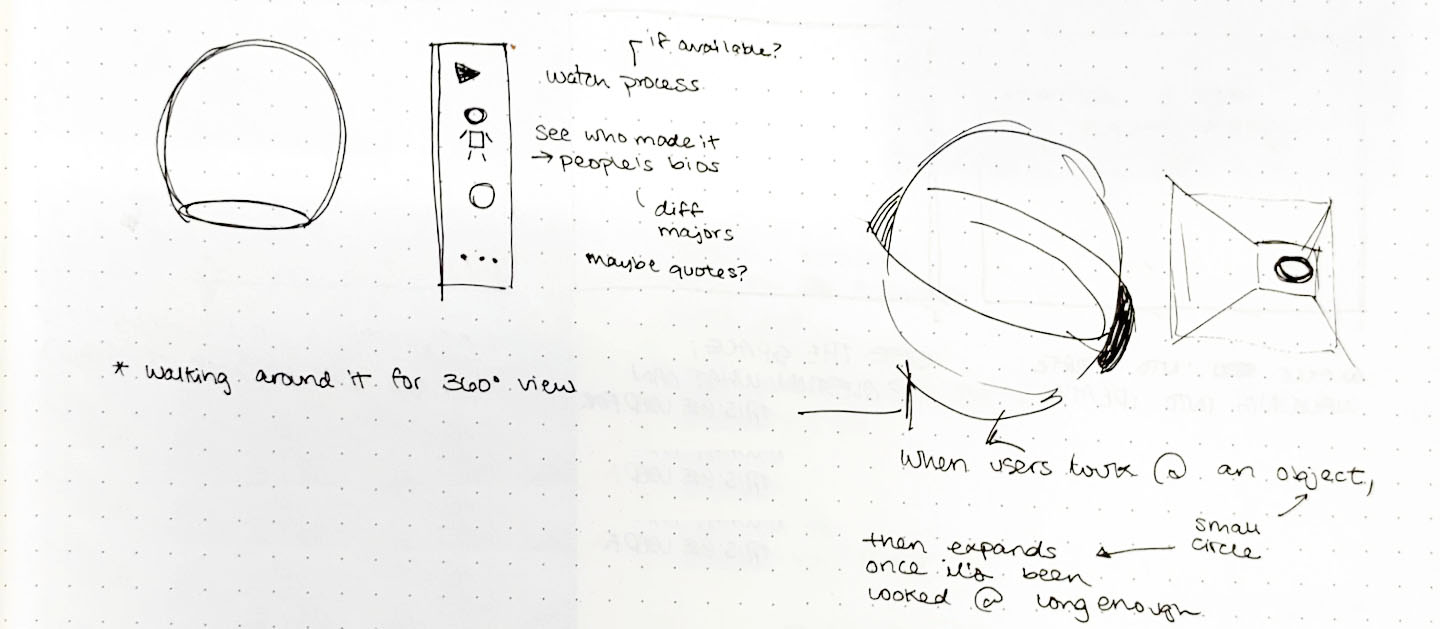 if available?
watch process
see who made it
→ people's bios
diff
majors
maybe quotes?
* walking around it for 360° view
when users look @ an object,
small
circle
then expands
once it's been
looked @ long enough